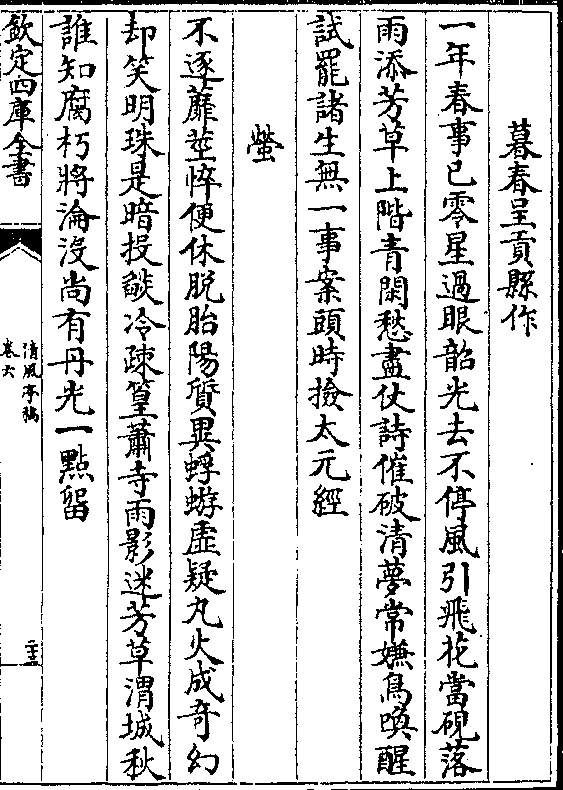 暮春呈貢縣作
一年春事已零星過眼韶光去不停風引飛花當硯落
雨添芳草上階青閑愁盡仗詩催破清夢常嫌鳥喚醒
試罷諸生無一事案頭時撿太元經
螢
不逐蘼莖悴便休脱胎陽質異蜉蝣虛疑丸火成奇幻
却笑明珠是暗投燄冷疎篁蕭寺雨影迷芳草渭城秋
誰知腐朽將淪没尚有丹光一點留
欽定四庫全書
清風亭稿
卷六
二十三